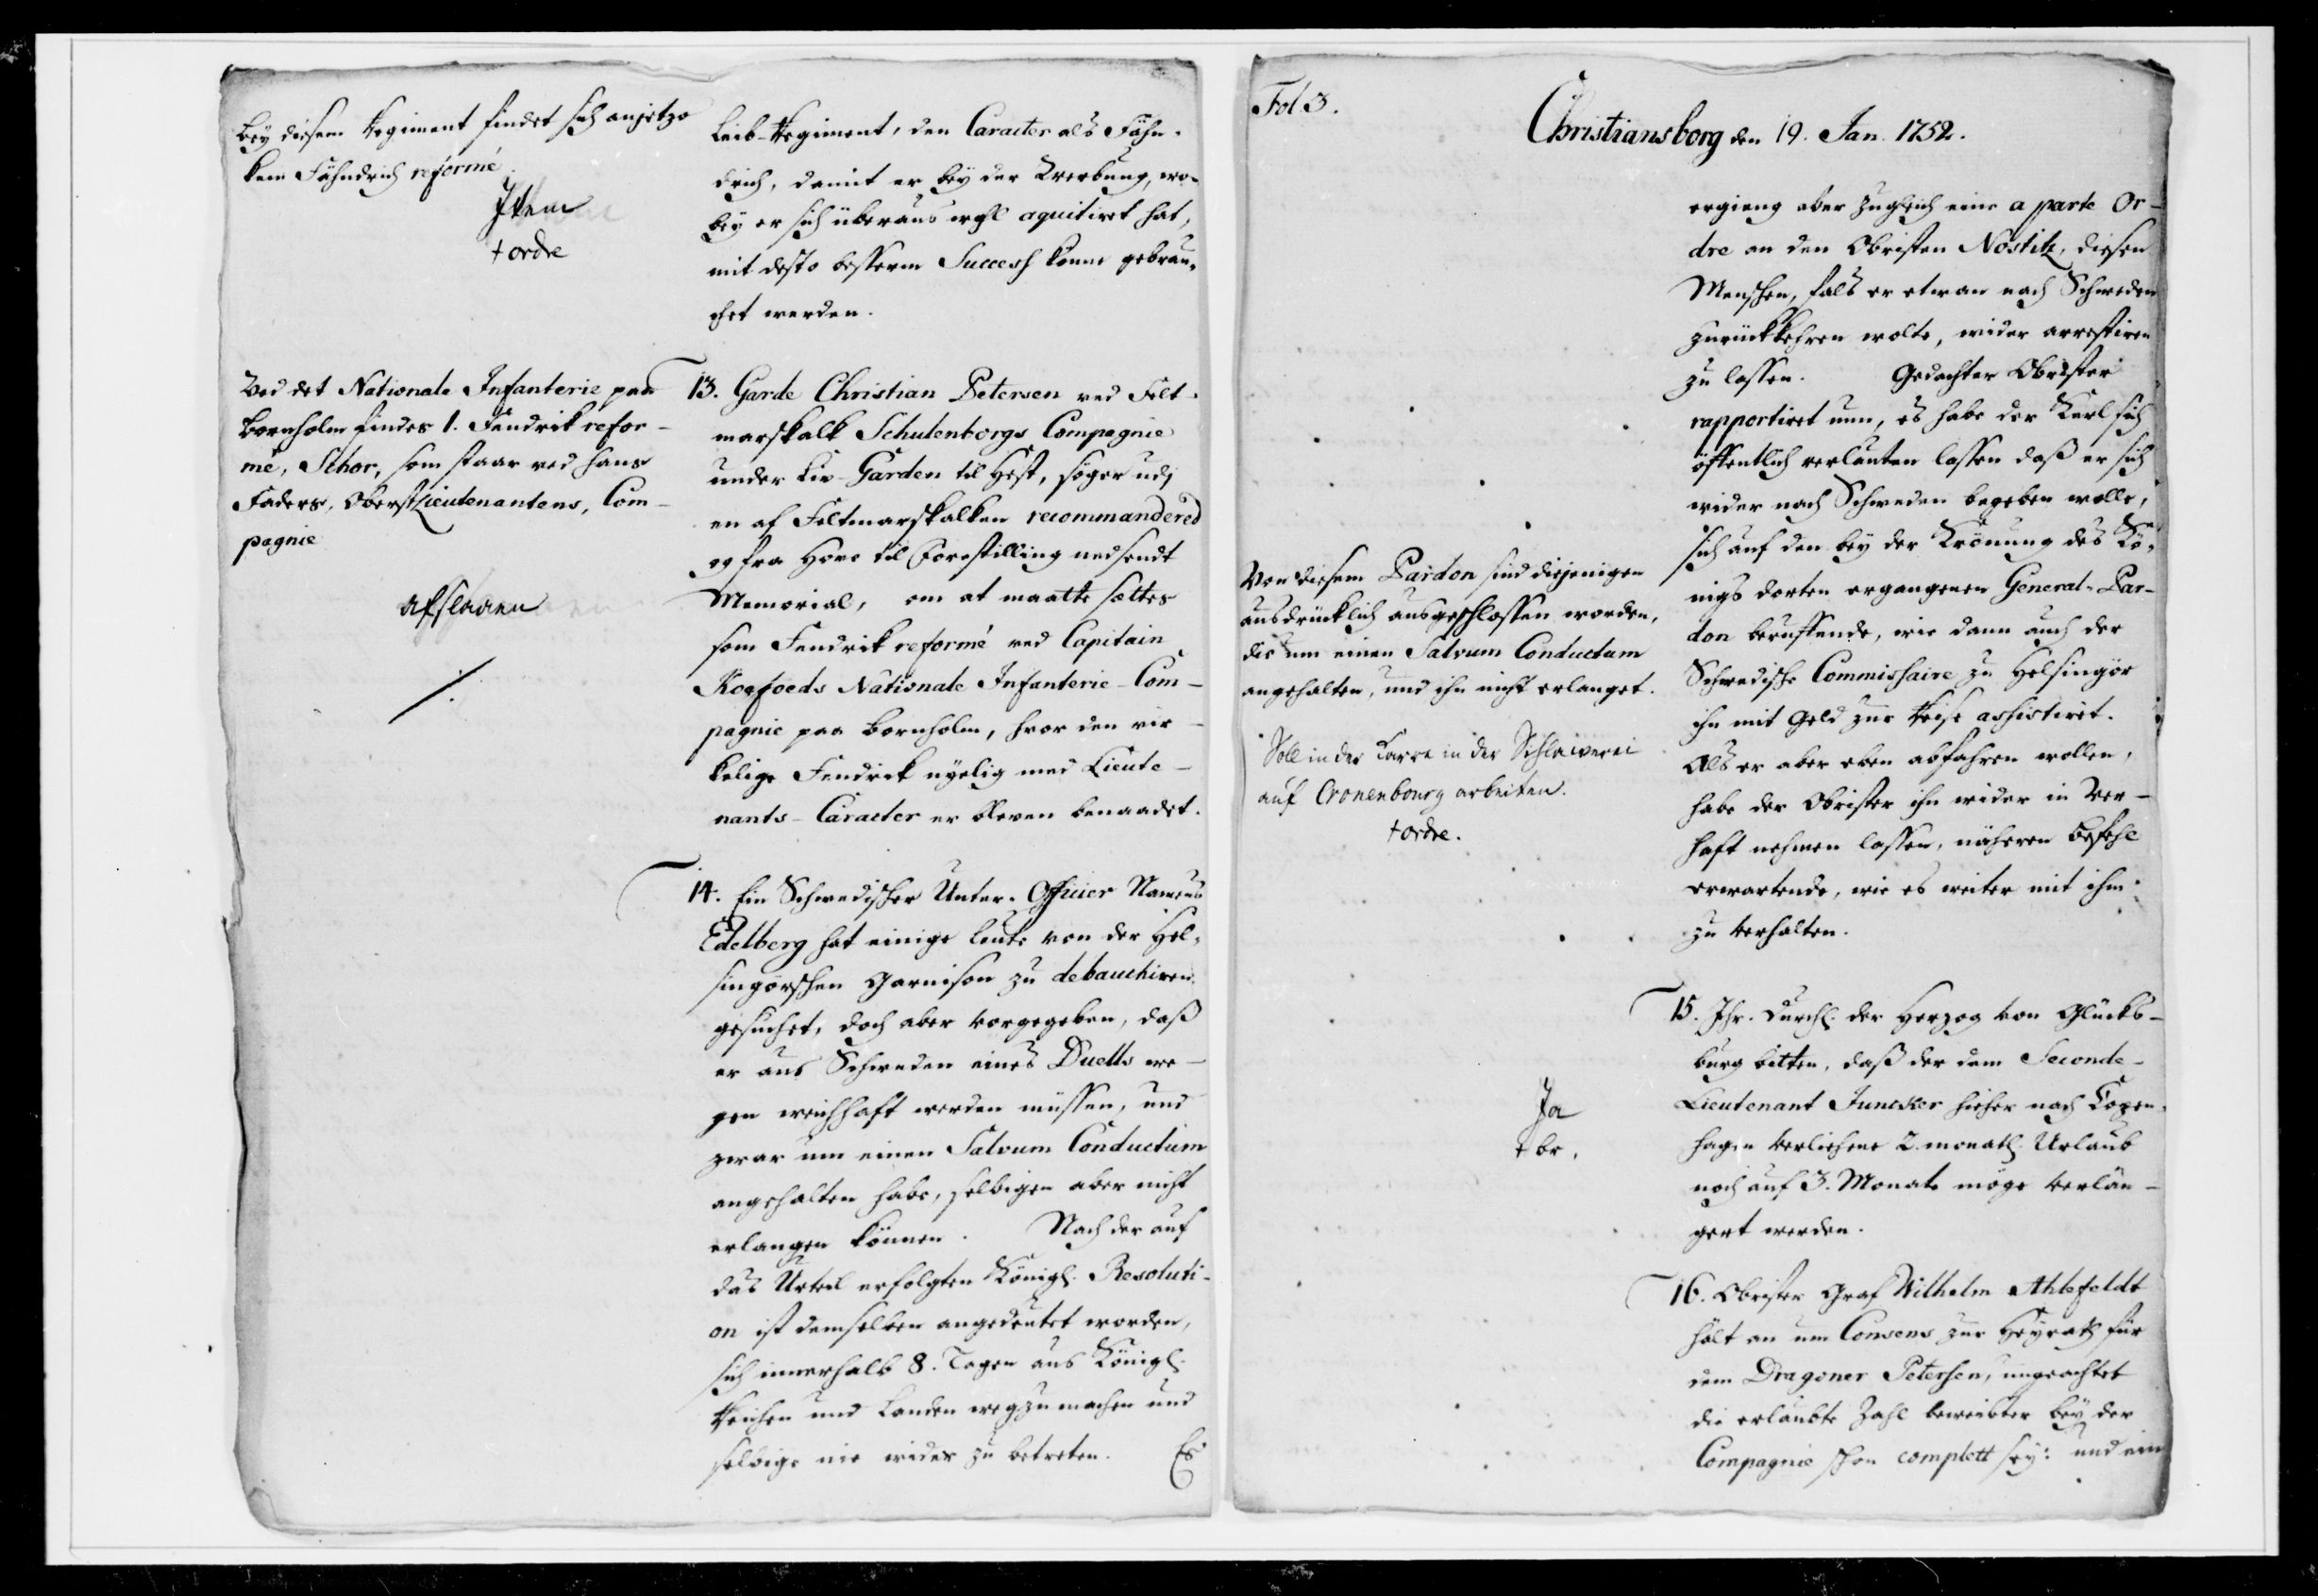 Bey diesem Regiment findet sich anjetzo
kein Fähndrich reformé.
Item
+ ordre
Ved det Nationale Infanterie paa
Bornholm findes 1. Fendrik refor-
mé, Schor, som staar ved hans
Faders, OberstLieutenantens, Com-
pagnie
afslaaen
Leib-Regiment, den Caracter als Fähn-
drich, damit er bey der Werbung, wo-
bey er sich überaus wohl aquitiret hat,
mit desto besserm Success könne gebrau-
chet werden.
13. Garde Christian Petersen ved Felt-
marskalk Schulenborgs Compagnie
under Liv-Garden til Hest, søger udj
en af Feltmarskalken recommandered
og fra Hove til Forestilling nedsendt
Memorial, om at maatte sættes
som Fendrik reformé ved Capitain
Koefoeds Nationale Infanterie-Com-
pagnie paa Bornholm, hvor den vir-
kelige Fendrik nyelig med Lieute-
nants-Caracter er bleven benaadet.
14. Ein Schwedischer Unter-Officier Namens
Edelberg hat einige Leute von der Hel-
singörschen Garnison zu debauchiren
gesuchet, doch aber vorgegeben, daß
er aus Schweden eines Duells we-
gen weichhaft werden müssen, und
zwar um einen Salvum Conductum
angehalten habe, selbigen aber nicht
erlangen können. Nach der auf
das Urteil erfolgten Königl. Resoluti-
on ist demselben angedeutet worden,
sich innerhalb 8. Tagen aus Königl.
Reichen und Landen wegzumachen und
selbige nie wider zu betreten. Es
Fol. 3.
Christiansborg den 19. Jan. 1752.
Von diesem Pardon sind diejenigen
ausdrücklich ausgeschlossen worden,
die um einen Salvum Conductum
angehalten, und ihn nicht erlanget.
Soll in der Karre in der Schlawerei
auf Cronenbourg arbeiten.
+ ordre.
Ja
+ br.
ergieng aber zugleich eine a parte Or-
dre an den Obristen Nostitz, diesen
Menschen, fals er etwan nach Schweden
zurückkehren wolte, wider arrestiren
zu lassen. Gedachter Obrister
rapportiret nun, es habe der Kerl sich
öffentlich verlauten lassen daß er sich
wider nach Schweden begeben wolle,
sich auf den bey der Krönung des Kö-
nigs dorten ergangenen General-Par-
don beruffende, wie dann auch der
Schwedische Commissaire zu Helsingör
ihn mit Geld zur Reise assistiret.
Als er aber eben abfahren wollen,
habe der Obrister ihn wider in Ver-
haft nehmen lassen, näheren Befehl
erwartende, wie es weiter mit ihm
zu verhalten.
15. Ihr. Durchl. der Herzog von Glücks-
burg bitten, daß der dem Seconde-
Lieutenant Juncker hieher nach Copen-
hagen verliehene 2. monatl. Urlaub
noch auf 3. Monate möge verlän-
gert werden.
16. Obrister Graf Wilhelm Ahlefeldt
hält an um Consens zur Heyrath für
dem Dragoner Petersen, ungeachtet
die erlaubte Zahl beweibter bey der
Compagnie schon complett sey: und ein